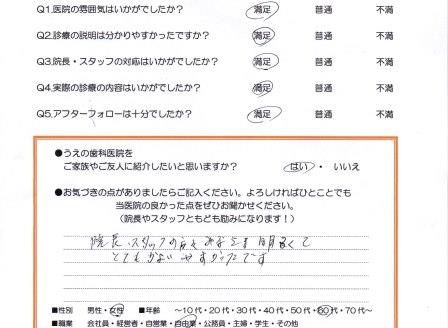 Q1.医院の雰囲気はいかがでしたか? 満足 普通 不満
Q2.診療の説明は分かりやすかったですか? 満足 普通 不満
Q3.院長・スタッフの対応はいかがでしたか? 満足 普通 不満
Q4.実際の診療の内容はいかがでしたか? 満足 普通 不満
Q5.アフターフォローは十分でしたか? 満足 普通 不満
●うえの歯科医院を
ご家族やご友人に紹介したいと思いますか? はい ・ いいえ
●お気づきの点がありましたらご記入ください。よろしければひとことでも
当医院の良かった点をぜひお聞かせください。
(院長やスタッフともども励みになります!)
院長、スタッフの方々みなさま明るくて
とても かよい やすかったです
■性別 男性・女性 ■年齢 〜10代・20代・30代・40代・50代・60代・70代〜
■職業 会社員・経営者・自営業・自由業・公務員・主婦・学生・その他